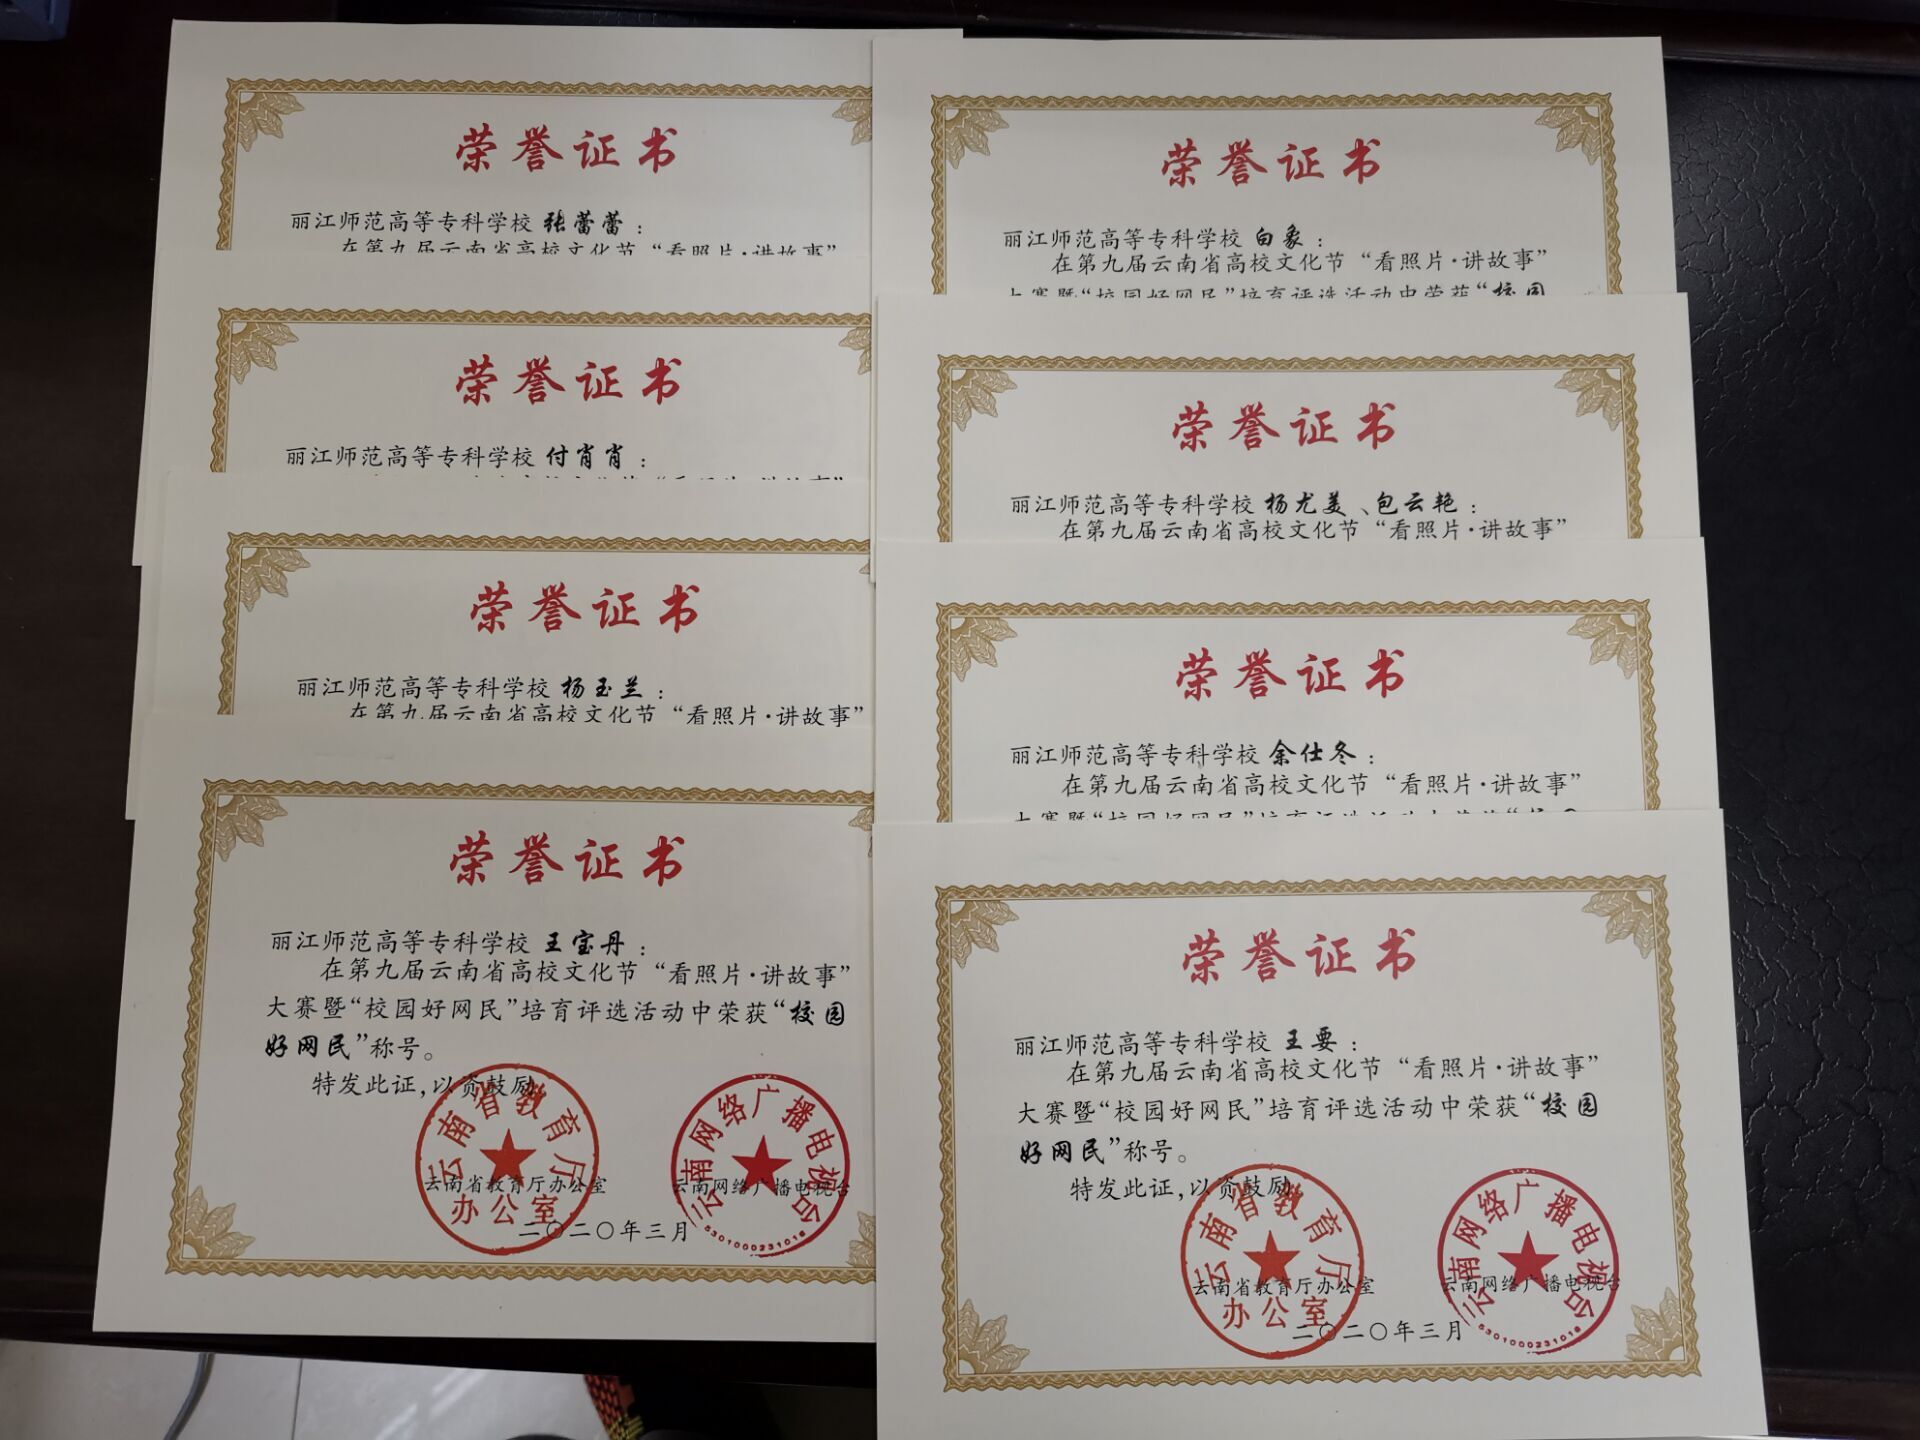 荣誉证书
丽江师范高等专科学校 张蕾蕾：
在第九届云南省高校文化节“看照片·讲故事”
荣誉证书
丽江师范高等专科学校 付肖肖：
荣誉证书
丽江师范高等专科学校 杨玉兰：
在第九届云南省高校文化节“看照片·讲故事”
荣誉证书
丽江师范高等专科学校 王宝丹：
在第九届云南省高校文化节“看照片·讲故事”
大赛暨“校园好网民”培育评选活动中荣获“校园
好网民”称号。
特发此证，以资鼓励
云南省教育厅
办公室
云南网络广播电视台
5301000231018
云南省教育厅办公室 云南网络广播电视台
二〇二〇年三月
荣誉证书
丽江师范高等专科学校 白象：
在第九届云南省高校文化节“看照片·讲故事”
大赛暨“校园好网民”培育评选活动中荣获“校园
荣誉证书
丽江师范高等专科学校 杨尤美、包云艳：
在第九届云南省高校文化节“看照片·讲故事”
荣誉证书
丽江师范高等专科学校 余仕冬：
在第九届云南省高校文化节“看照片·讲故事”
大赛暨“校园好网民”培育评选活动中荣获“校园
荣誉证书
丽江师范高等专科学校 王要：
在第九届云南省高校文化节“看照片·讲故事”
大赛暨“校园好网民”培育评选活动中荣获“校园
好网民”称号。
特发此证，以资鼓励
云南省教育厅
办公室
云南网络广播电视台
5301000231018
云南省教育厅办公室 云南网络广播电视台
二〇二〇年三月